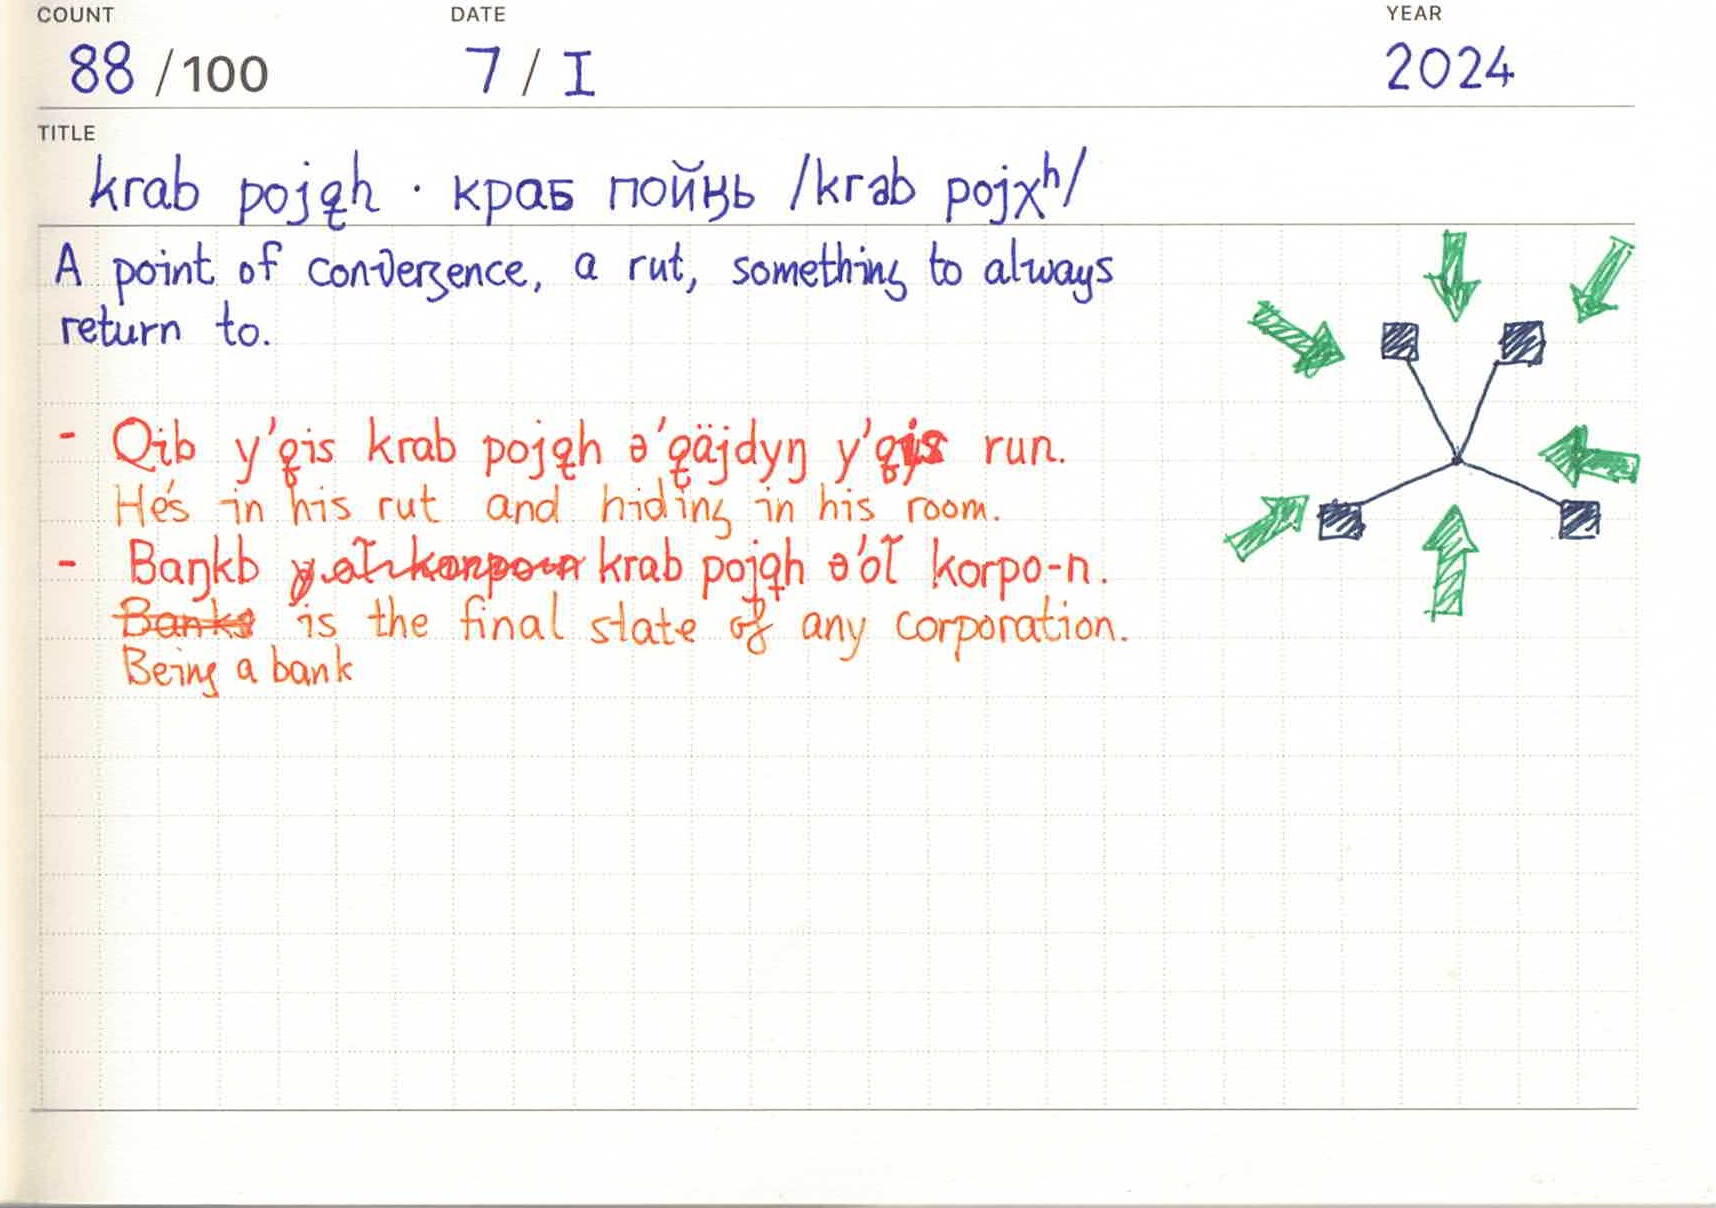 COUNT DATE YEAR
88 / 100 7 / I 2024
TITLE
krab pojꝗh · краб пойӄь /krab pojχʰ/
A point of convergence, a rut, something to always
return to.
- Qib y'ꝗis krab pojꝗh ə'ꝗäjdyŋ y'ꝗis run.
He's in his rut and hiding in his room.
- Baŋkb krab pojꝗh ə'ol̃ korpo-n.
Banks is the final state of any corporation.
Being a bank